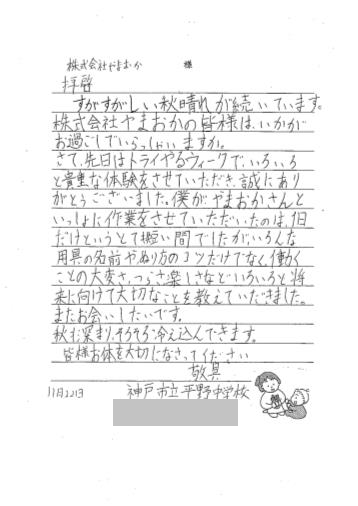 株式会社やまおか 様
拝啓
すがすがしい秋晴れが続いています。
株式会社やまおかの皆様は、いかが
お過ごしでいらっしゃいますか。
さて、先日はトライやるウィークで、いろいろ
と貴重な体験をさせていただき、誠にあり
がとうございました。僕がやまおかさんと
いっしょに作業をさせていただいたのは、1日
だけというとても短い間でしたがいろんな
用具の名前やぬり方のコツだけでなく、働く
ことの大変さ、つらさ、楽しさなどいろいろと将
来に向けて大切なことを教えていただきました。
またお会いしたいです。
秋も深まり、そろそろ冷え込んできます。
皆様お体を大切になさってください
敬具
11月22日 神戸市立平野中学校